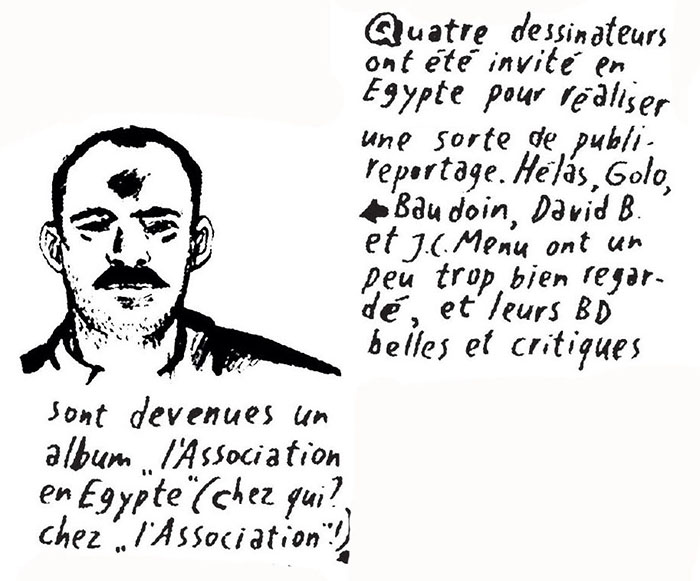 Quatre dessinateurs
ont été invité en
Egypte pour réaliser
une sorte de publi-
reportage. Hélas, Golo,
Baudoin, David B.
et J.C. Menu ont un
peu trop bien regar-
dé, et leurs BD
belles et critiques
sont devenues un
album „l'Association
en Egypte" (chez qui?
chez „l'Association"!)